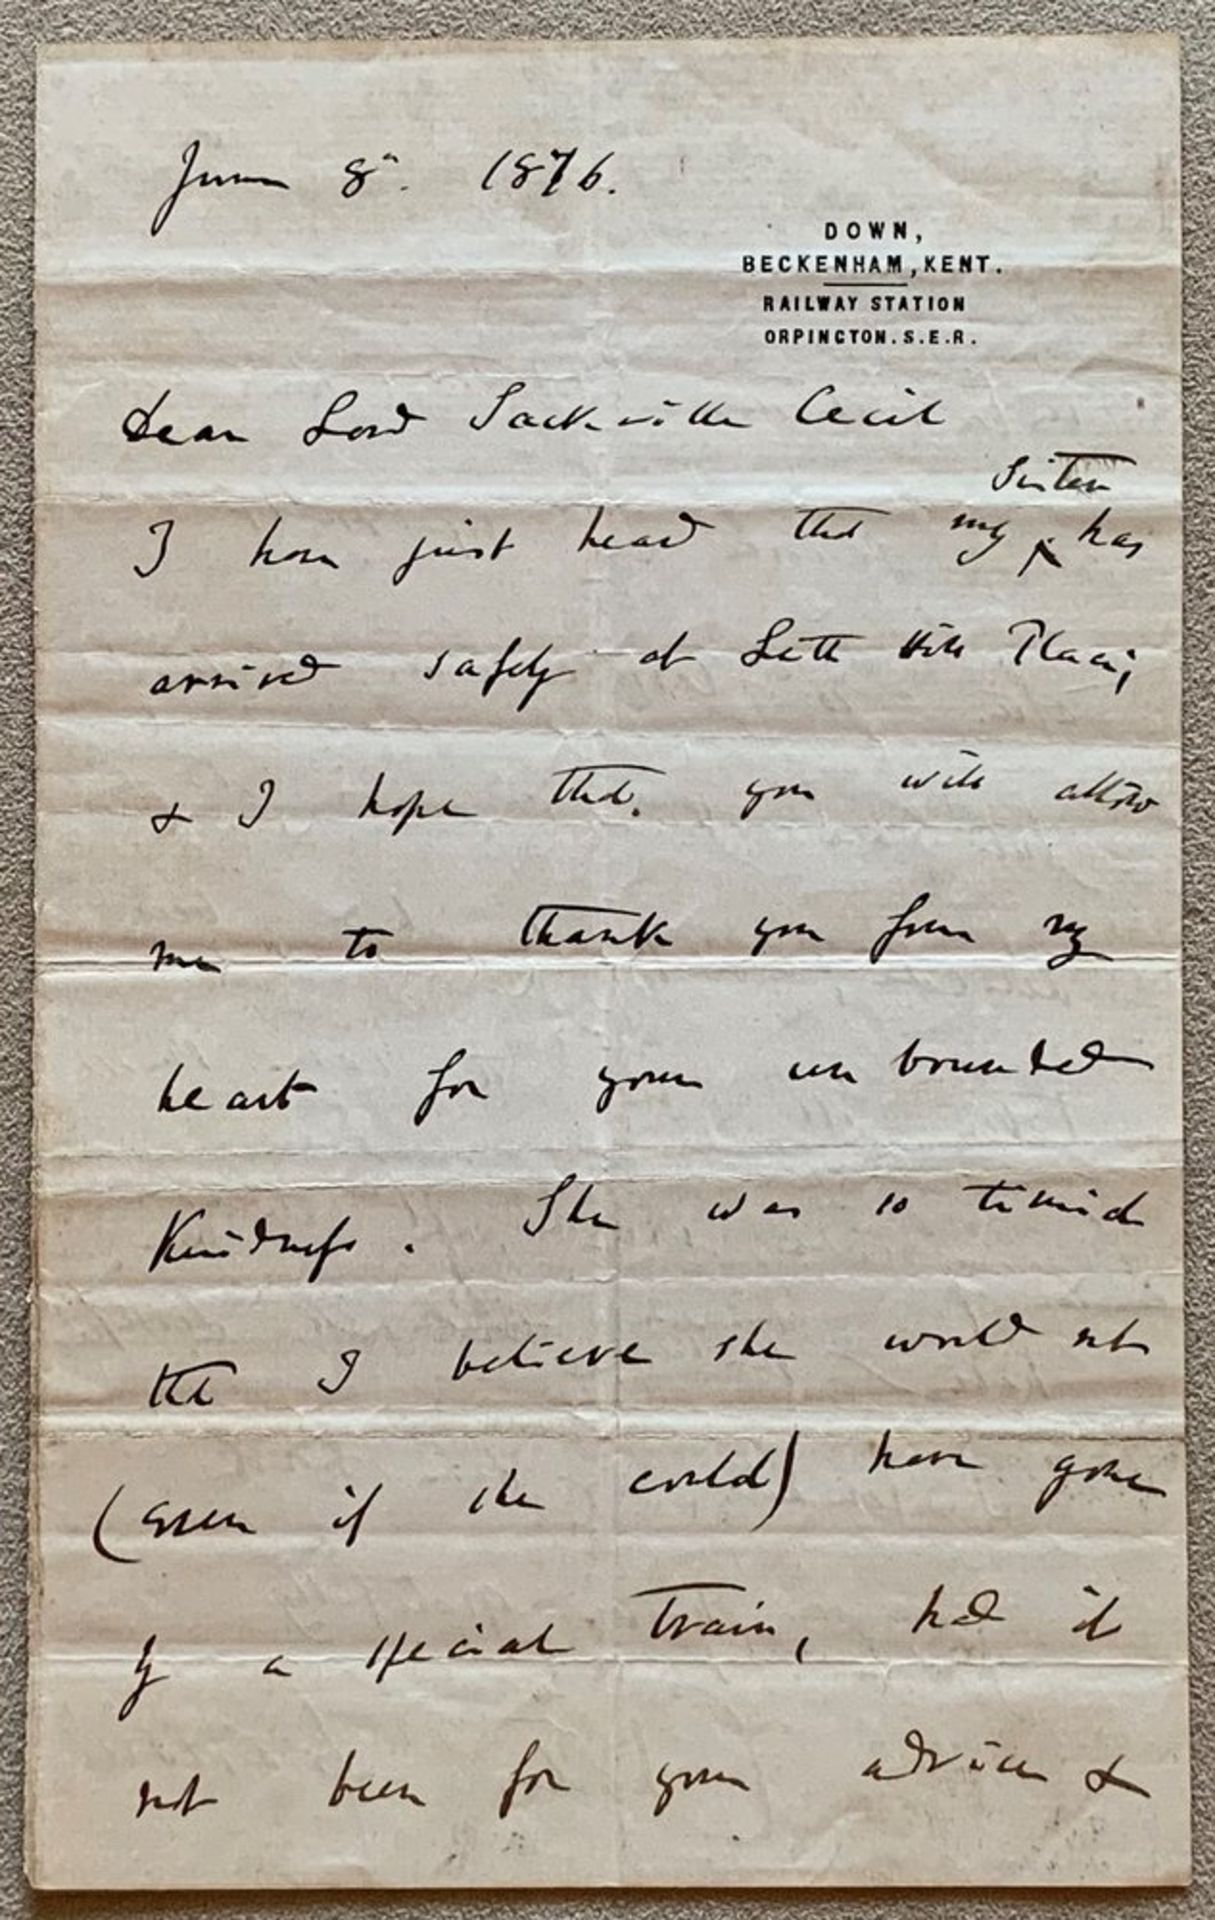 June 8th. 1876.
DOWN,
BECKENHAM, KENT.
RAILWAY STATION
ORPINGTON. S.E.R.
Dear Lord Sackville Cecil
sister
I have just heard that my ‸ has
arrived safely at Leith Hill Place;
& I hope that you will allow
me to thank you from my
heart for your unbounded
kindness. She was so timid
that I believe she would not
(even if she could) have gone
by a special train, had it
not been for your advice &